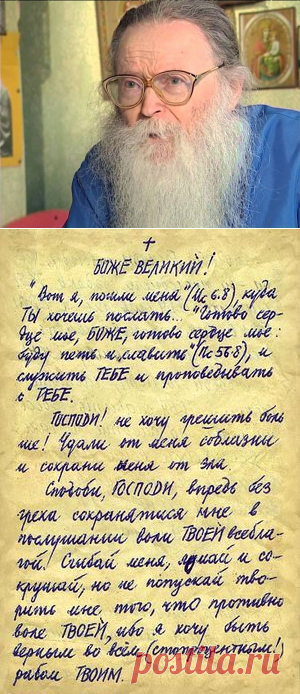 БОЖЕ ВЕЛИКИЙ!
"Вот я, пошли меня" (Ис 6.8), куда
ТЫ хочешь послать... "Готово сер-
дце мое, БОЖЕ, готово сердце мое:
буду петь и славить" (Пс 56.8), и
служить ТЕБЕ и проповедывать
о ТЕБЕ.
ГОСПОДИ! не хочу грешить боль
ше! Удали от меня соблазны
и сохрани меня от зла.
Сподоби, ГОСПОДИ, впредь без
греха сохранятися мне в
послушании воли ТВОЕЙ всебла-
гой! Сгибай меня, ломай и со-
крушай, но не попускай тво-
рить мне того, что противно
воле ТВОЕЙ, ибо я хочу быть
верным во всём (стопроцентным!)
рабом ТВОИМ.
posta1i.ru